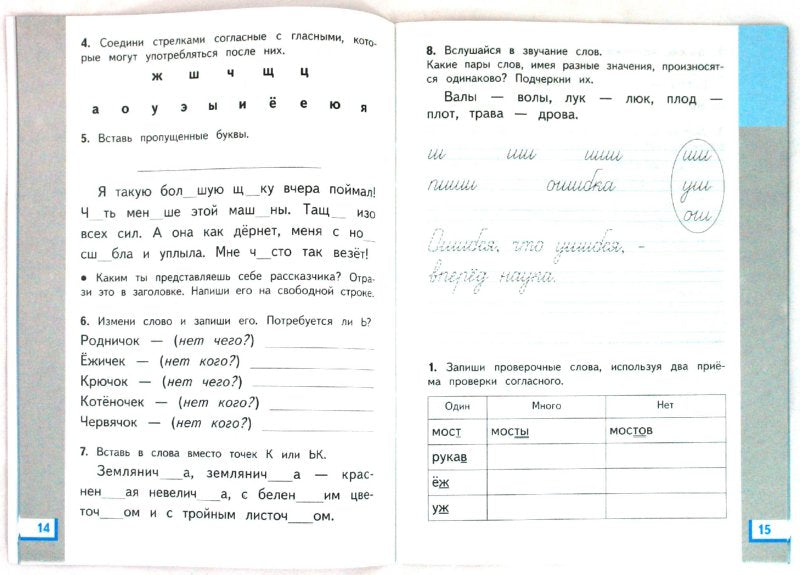 4. Соедини стрелками согласные с гласными, кото-
рые могут употребляться после них.
ж ш ч щ ц
а о у э ы и ё е ю я
5. Вставь пропущенные буквы.
Я такую бол__шую щ__ку вчера поймал!
Ч__ть мен__ше этой маш__ны. Тащ__ изо
всех сил. А она как дёрнет, меня с но__
сш__бла и уплыла. Мне ч__сто так везёт!
• Каким ты представляешь себе рассказчика? Отра-
зи это в заголовке. Напиши его на свободной строке.
6. Измени слово и запиши его. Потребуется ли Ь?
Родничок — (нет чего?)
Ёжичек — (нет кого?)
Крючок — (нет чего?)
Котёночек — (нет кого?)
Червячок — (нет кого?)
7. Вставь в слова вместо точек К или ЬК.
Землянич___а, землянич___а — крас-
нен___ая невелич___а, с белен___им цве-
точ___ом и с тройным листоч___ом.
14
8. Вслушайся в звучание слов.
Какие пары слов, имея разные значения, произносят-
ся одинаково? Подчеркни их.
Валы — волы, лук — люк, плод —
плот, трава — дрова.
ш иш шиш иш
пиши ошибка уш
ош
Ошибся, что ушибся, –
вперёд наука.
1. Запиши проверочные слова, используя два приё-
ма проверки согласного.
Один Много Нет
мост мосты мостов
рукав
ёж
уж
15